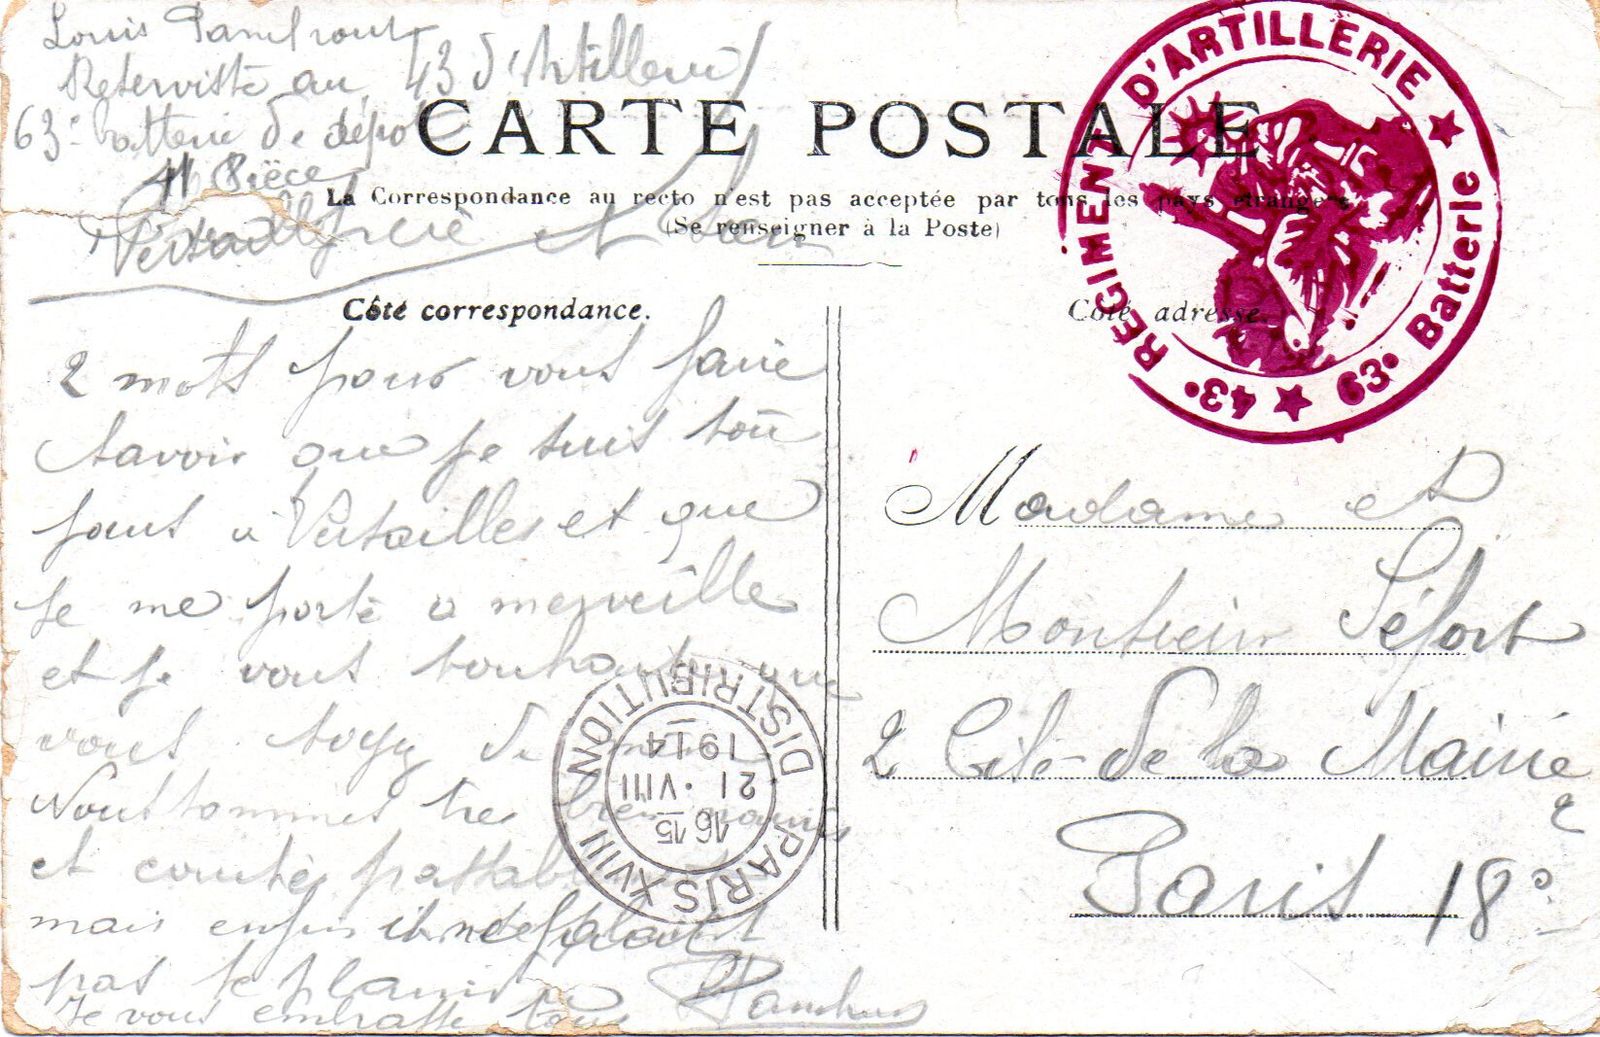 Louis
Reserviste au 43 d'Artillerie
63e batterie de depot
Pièce
Versailles
CARTE POSTALE
La Correspondance au recto n'est pas acceptée par tous les pays étrangers
(Se renseigner à la Poste)
Côté correspondance.
2 mots pour vous faire
savoir que je suis
à Versailles et que
je me porte a merveille
et je vous souhaite que
vous soyez de meme
Nous sommes tres bien
et couchés passable
mais enfin il ne faut
pas se plaindre
Je vous embrasse tous
RÉGIMENT D'ARTILLERIE ★
43e ★ 63e Batterie
Côté adresse.
Madame et
Monsieur Séfort
2 Cité de la Mairie
2
Paris 18e
PARIS XVIII DISTRIBUTION
16 15
21 · VIII
1914